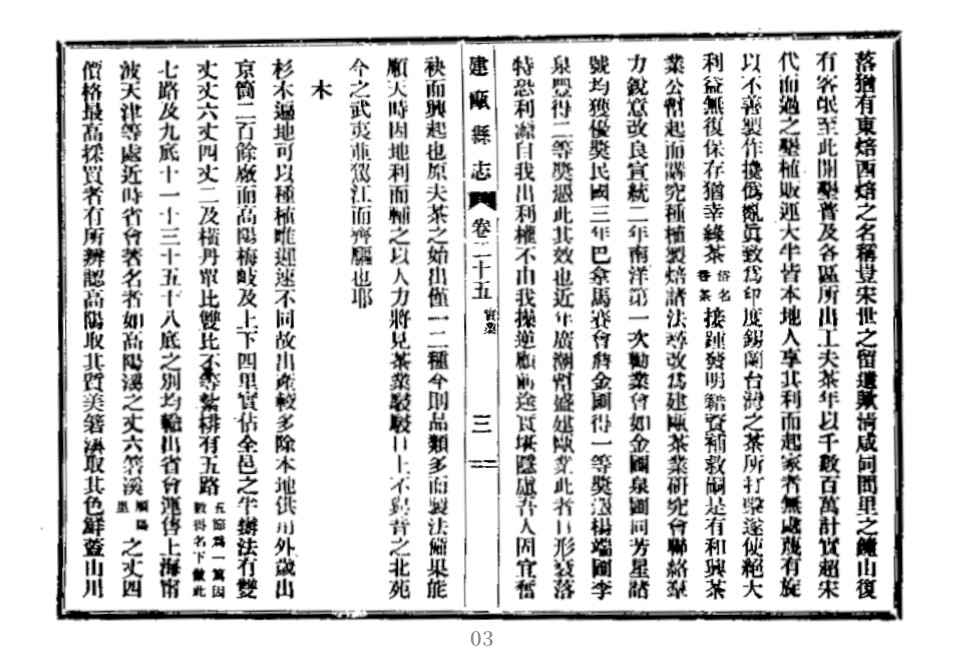 落猶有東焙西焙之名稱豈宋世之留遺歟清咸同間里之鐘山復
有客氓至此開墾普及各區所出工夫茶年以千數百萬計實超宋
代而過之墾植販運大半皆本地人享其利而起家者無處蔑有旋
以不善製作攙僞亂眞致爲印度錫蘭台灣之茶所打擊遂使絕大
利益無復保存猶幸綠茶俗名香茶接踵發明籍資補救嗣是有和興茶
業公幫起而講究種種製焙諸法尋改爲建甌茶業研究會聯絡羣
力銳意改良宣統二年南洋第一次勸業會如金圃泉圃同芳星諸
號均獲優獎民國三年巴拿馬賽會詹金圃得一等獎楊端圃李
泉豐得二等獎憑此其效也近年廣潮幫盛建甌業此者日形衰落
特恐利源自我出利權不由我操逆顧前途實堪隱慮吾人固宜奮
建甌縣志 卷二十五 實業 三
袂而興起也原夫茶之始出僅一二種今則品類多而製法備果能
順天時因地利而輔之以人力將見茶業駸駸日上不與昔之北苑
今之武夷並駕江而齊驅也耶
木
杉木遍地可以種植唯遲速不同故出產較多除本地供用外歲出
京筒二百餘廠而高陽梅岐及上下四里實佔全邑之半辦法有雙
丈丈六丈四丈二及橫丹單比雙比不等紮栟有五路五節爲一萬因數得名下倣此
七路及九底十一十三十五十八底之別均輸出省會運售上海甯
波天津等處近時省會著名者如高陽溪之丈六箬溪順陽里之丈四
價格最高採買者有所辨認高陽取其質美箬溪取其色鮮蓋山川
03